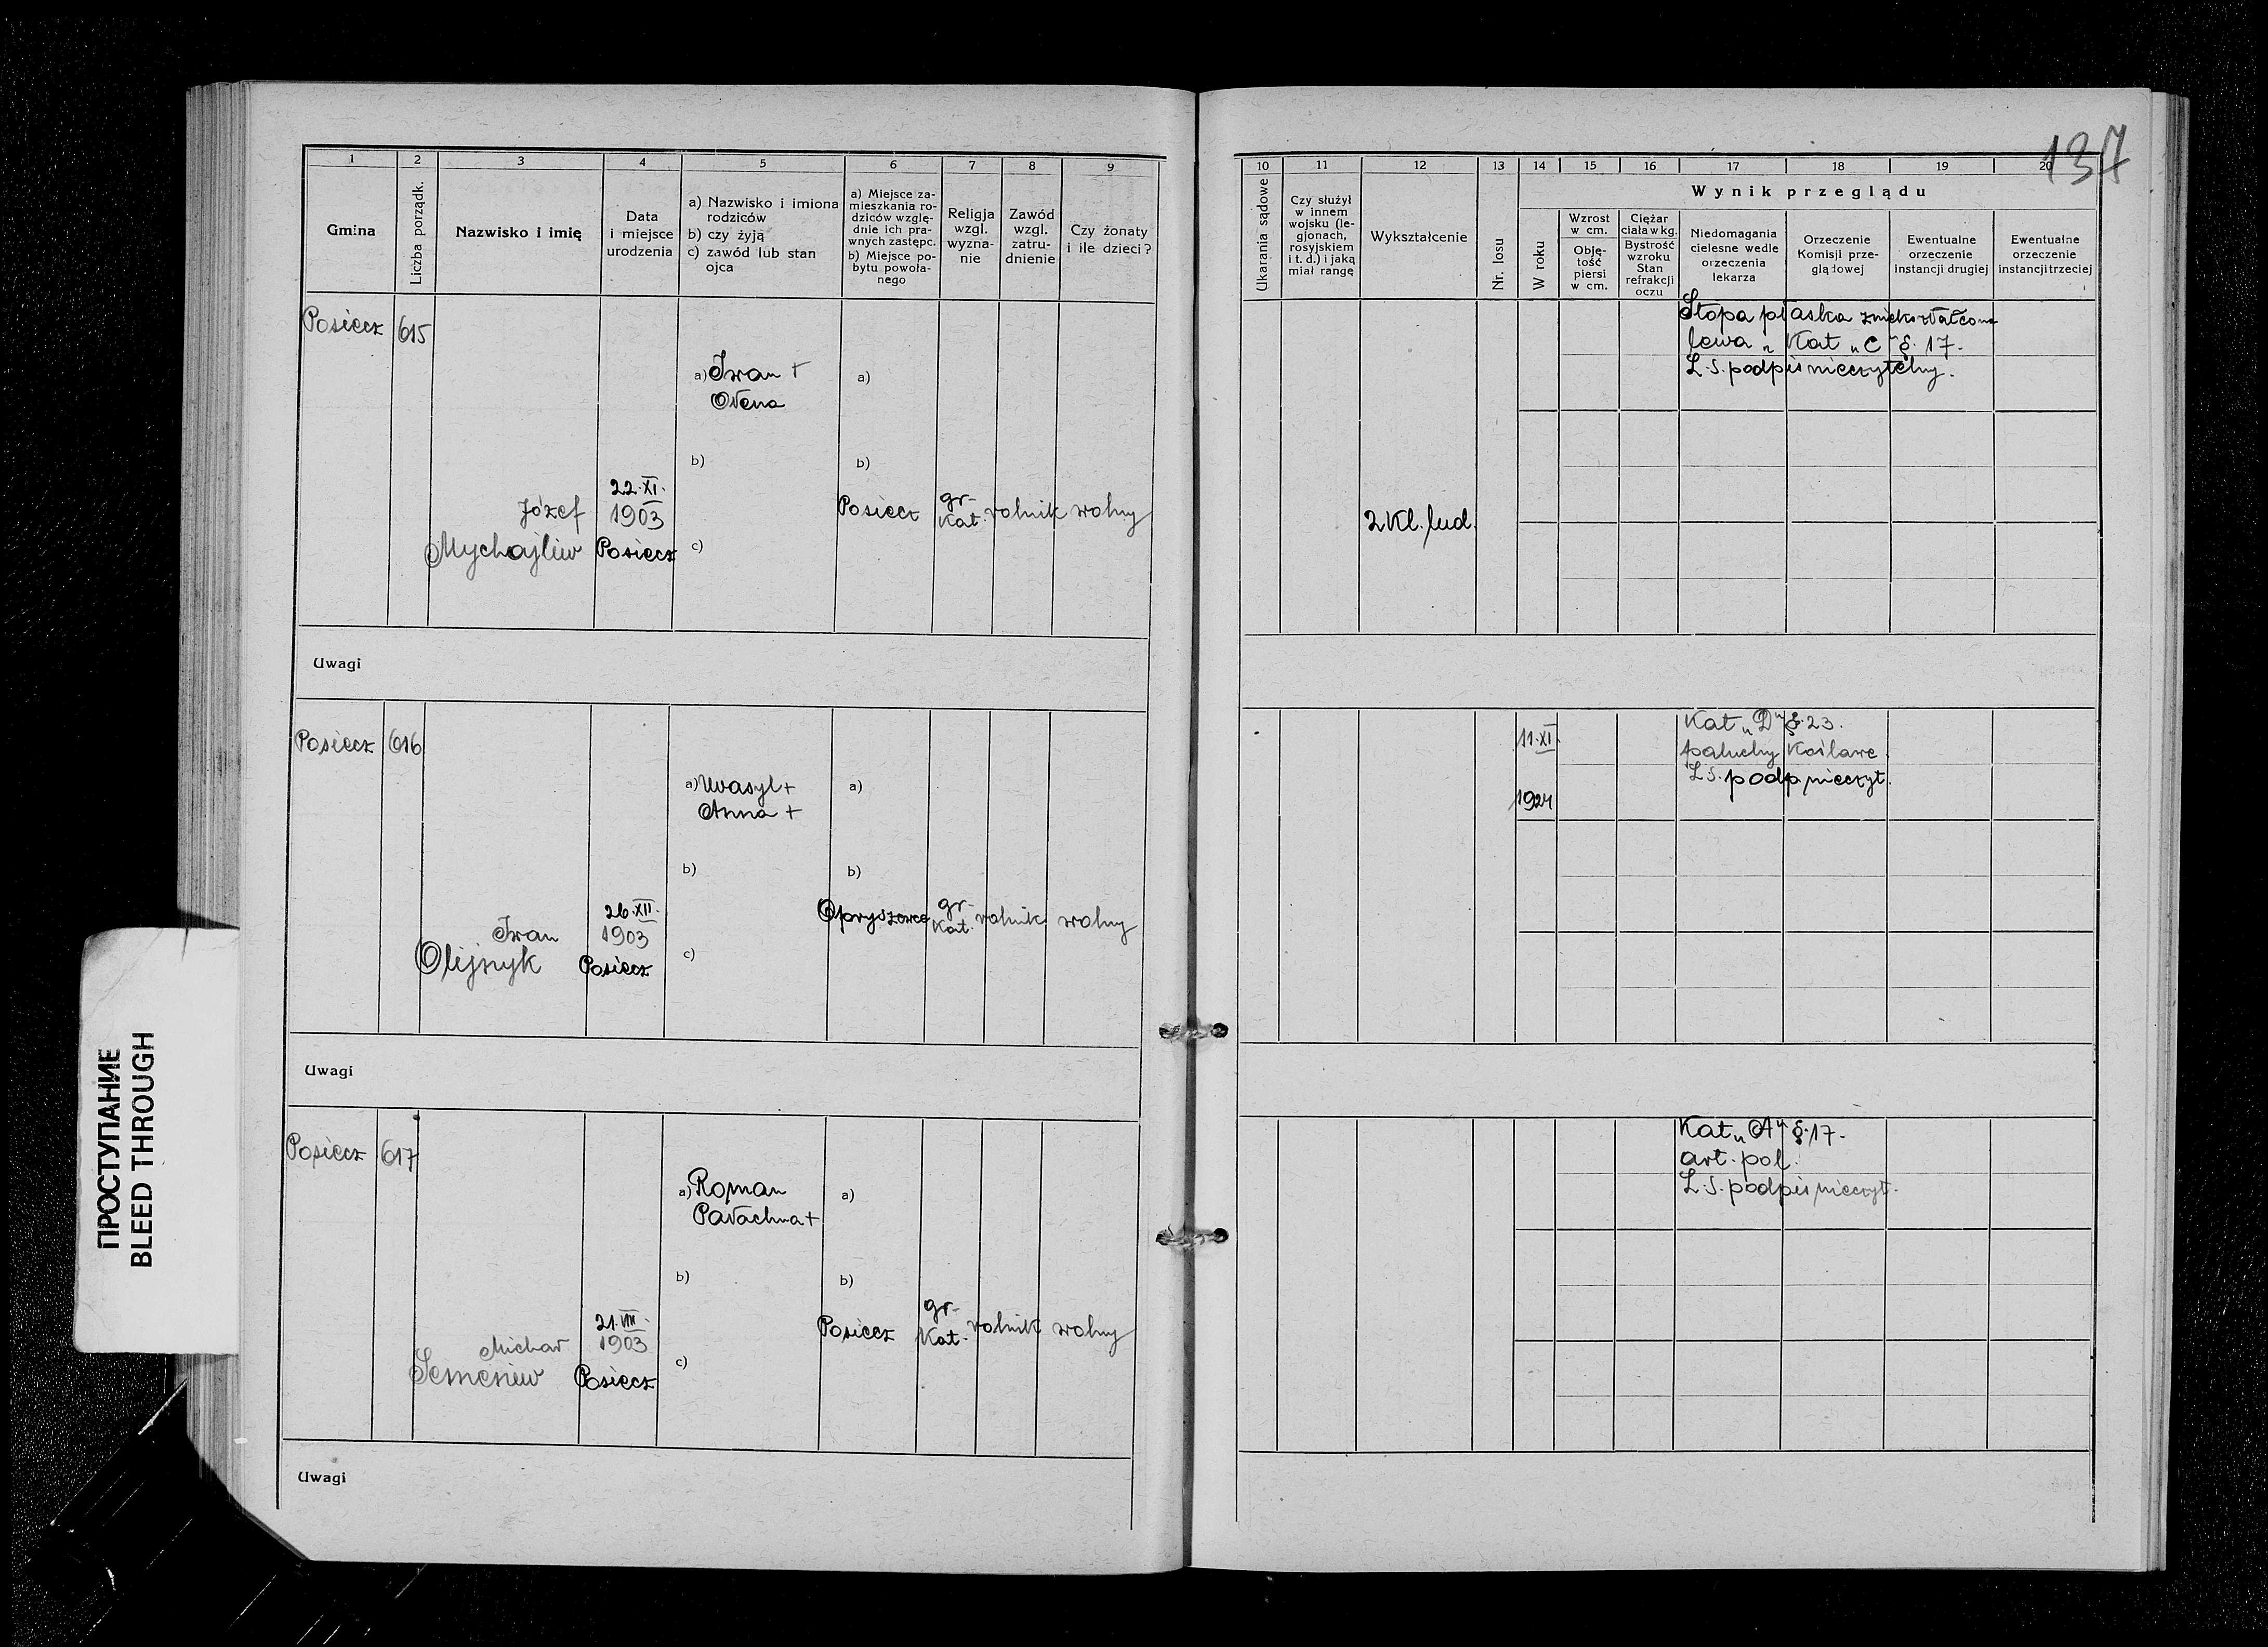 137
1 2 3 4 5 6 7 8 9
Gmina
Liczba porządk.
Nazwisko i imię
Data
i miejsce
urodzenia
a) Nazwisko i imiona
rodziców
b) czy żyją
c) zawód lub stan
ojca
a) Miejsce za-
mieszkania ro-
dziców wzglę-
dnie ich pra-
wnych zastępc.
b) Miejsce po-
bytu powoła-
nego
Religja
wzgl.
wyzna-
nie
Zawód
wzgl.
zatru-
dnienie
Czy żonaty
i ile dzieci?
10 11 12 13 14 15 16 17 18 19 20
Ukarania sądowe
Czy służył
w innem
wojsku (le-
gjonach,
rosyjskiem
i t. d.) i jaką
miał rangę
Wykształcenie
Nr. losu
Wynik przeglądu
W roku
Wzrost
w cm.
Obję-
tość
piersi
w cm.
Ciężar
ciała w kg.
Bystrość
wzroku
Stan
refrakcji
oczu
Niedomagania
cielesne wedle
orzeczenia
lekarza
Orzeczenie
Komisji prze-
glądowej
Ewentualne
orzeczenie
instancji drugiej
Ewentualne
orzeczenie
instancji trzeciej
Posiecz 615
Józef
Mychajliw
22.XI.
1903
Posiecz
a) Iwan +
Ołena
b)
c)
a)
b)
Posiecz
gr-
kat.
rolnik
wolny
2 kl. lud.
Stopa płaska zniekształcona
lewa „ Kat „C" §. 17.
L.S. podpis nieczytelny.
Uwagi
Posiecz 616
Iwan
Olejnyk
26.XII.
1903
Posiecz
a) Wasyl +
Anna +
b)
c)
a)
b)
Opryszowce
gr-
kat.
rolnik
wolny
11.XI.
1924
Kat „D" §. 23.
paluchy koślawe.
L.S. podp. nieczyt.
Uwagi
Posiecz 617
Michał
Semeniw
21.VIII.
1903
Posiecz
a) Roman
Parachna +
b)
c)
a)
b)
Posiecz
gr-
kat.
rolnik
wolny
Kat „A" §. 17.
art. pol.
L.S. podpis nieczyt.
Uwagi
ПРОСТУПАНИЕ
BLEED THROUGH